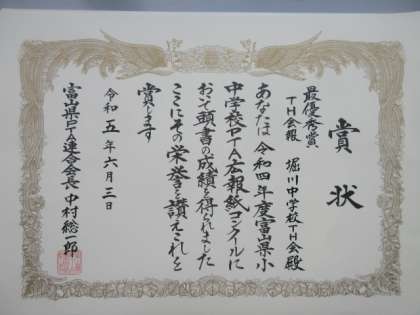 賞状
最優秀賞
TH会報 堀川中学校TH会殿
あなたは令和四年度富山県小
中学校PTA広報紙コンクールに
おいて頭書の成績を得られました
ここにその栄誉を讃えこれを
賞します
令和五年六月三日
富山県PTA連合会長 中村総一郎